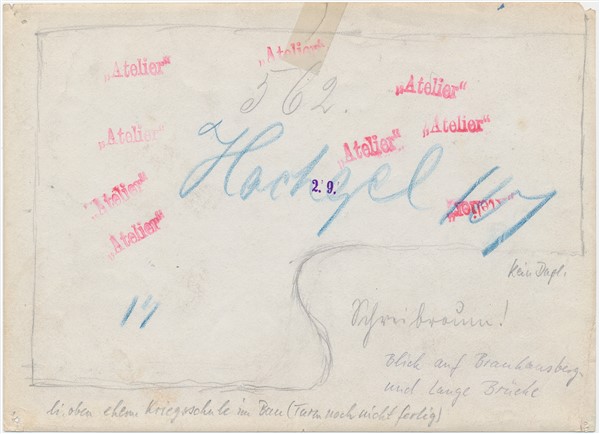 „Atelier“
„Atelier“
„Atelier“
562.
„Atelier“
„Atelier“
„Atelier“
„Atelier“
2. 9.
„Atelier“
„Atelier“
Kein Dupl.
14
Schreibraum!
Blick auf Brauhausberg
und lange Brücke
li. oben ehem. Kriegsschule im Bau (Turm noch nicht fertig)